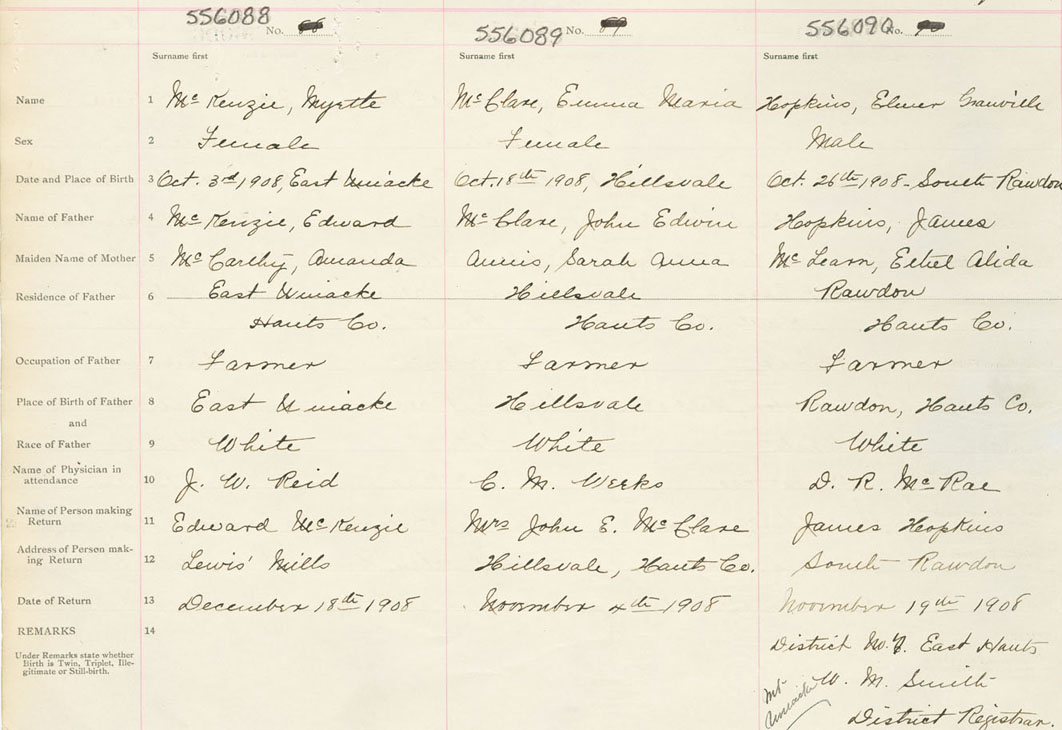 556088 No. 88 556089 No. 89 556090 No. 90
Surname first Surname first Surname first
Name 1 Mc Kenzie, Myrtle Mc Clare, Emma Maria Hopkins, Elmer Granville
Sex 2 Female Female Male
Date and Place of Birth 3 Oct. 3rd 1908, East Uniacke Oct. 18th 1908, Hillsvale Oct. 26th 1908 - South Rawdon
Name of Father 4 Mc Kenzie, Edward Mc Clare, John Edwin Hopkins, James
Maiden Name of Mother 5 Mc Carthy, Amanda Annis, Sarah Anna Mc Learn, Ethel Alida
Residence of Father 6 East Uniacke Hillsvale Rawdon
Hants Co. Hants Co. Hants Co.
Occupation of Father 7 Farmer Farmer Farmer
Place of Birth of Father 8 East Uniacke Hillsvale Rawdon, Hants Co.
and
Race of Father 9 White White White
Name of Physician in
attendance 10 J. W. Reid C. M. Weeks D. R. Mc Rae
Name of Person making
Return 11 Edward McKenzie Mrs John E. McClare James Hopkins
Address of Person mak-
ing Return 12 Lewis' Mills Hillsvale, Hants Co. South Rawdon
Date of Return 13 December 18th 1908 November 4th 1908 November 19th 1908
REMARKS 14
Under Remarks state whether
Birth is Twin, Triplet, Ille-
gitimate or Still-birth.
District No. East Hants
Mt Uniacke W. M. Smith
District Registrar.